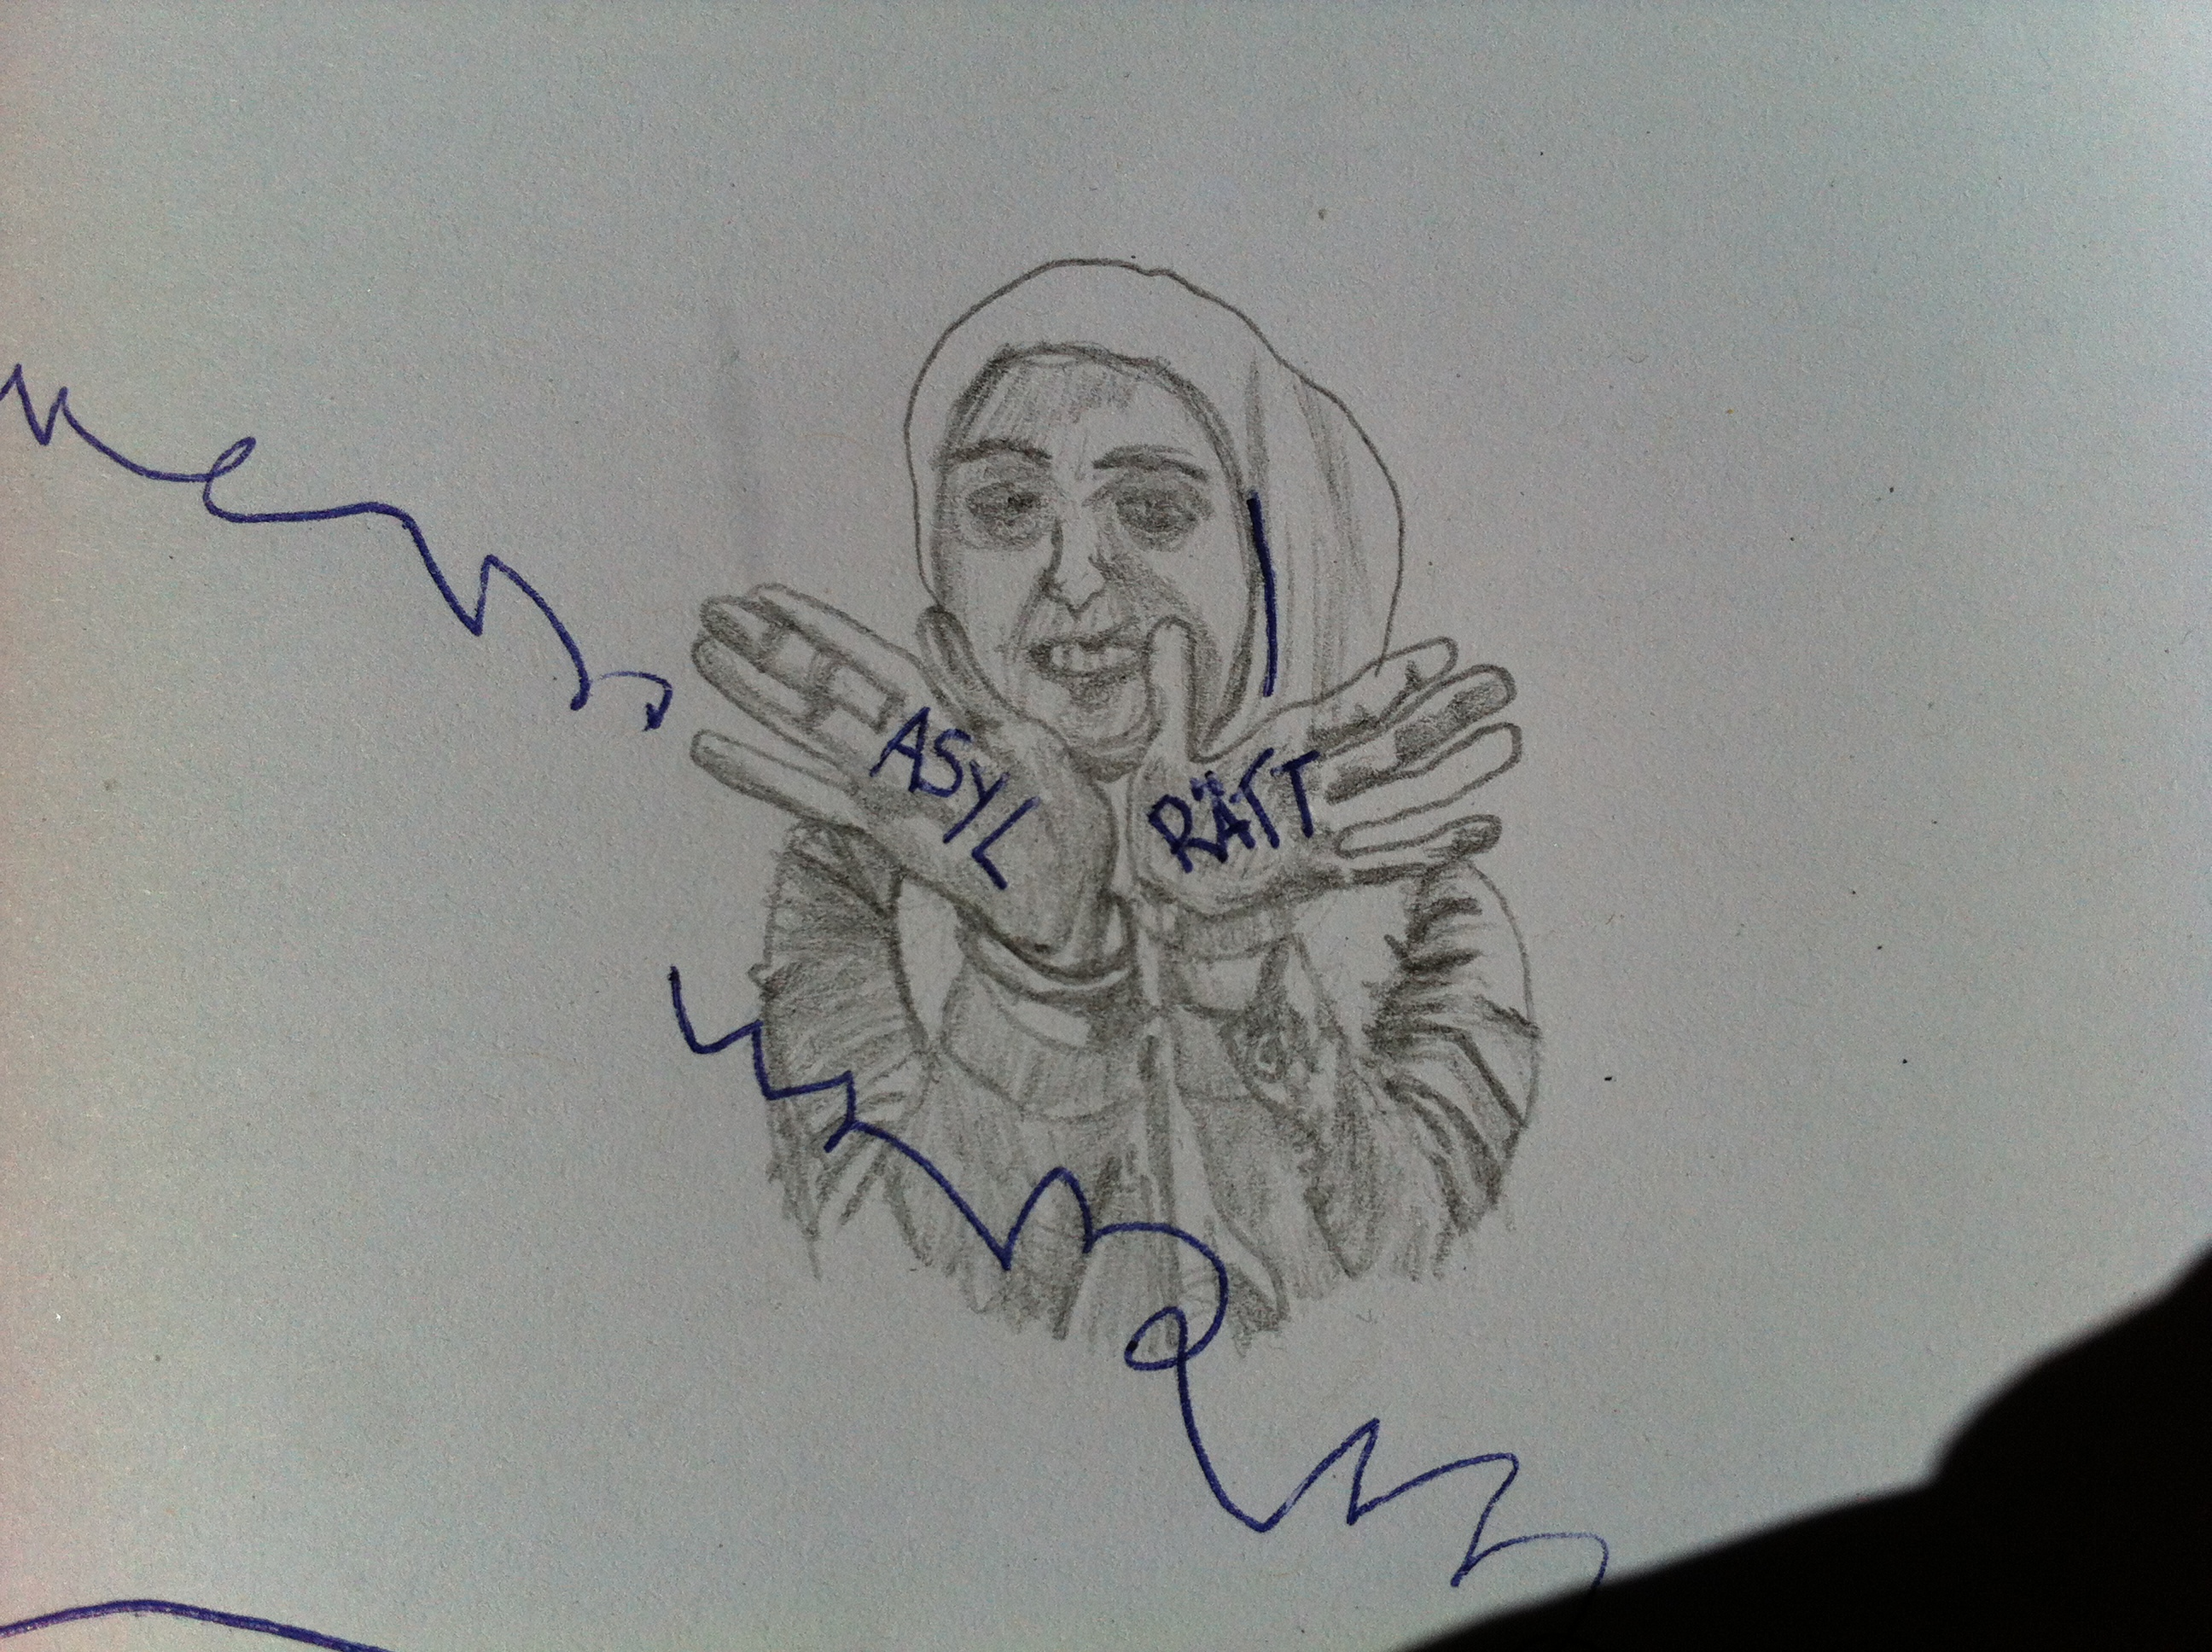 ASYL
RÄTT